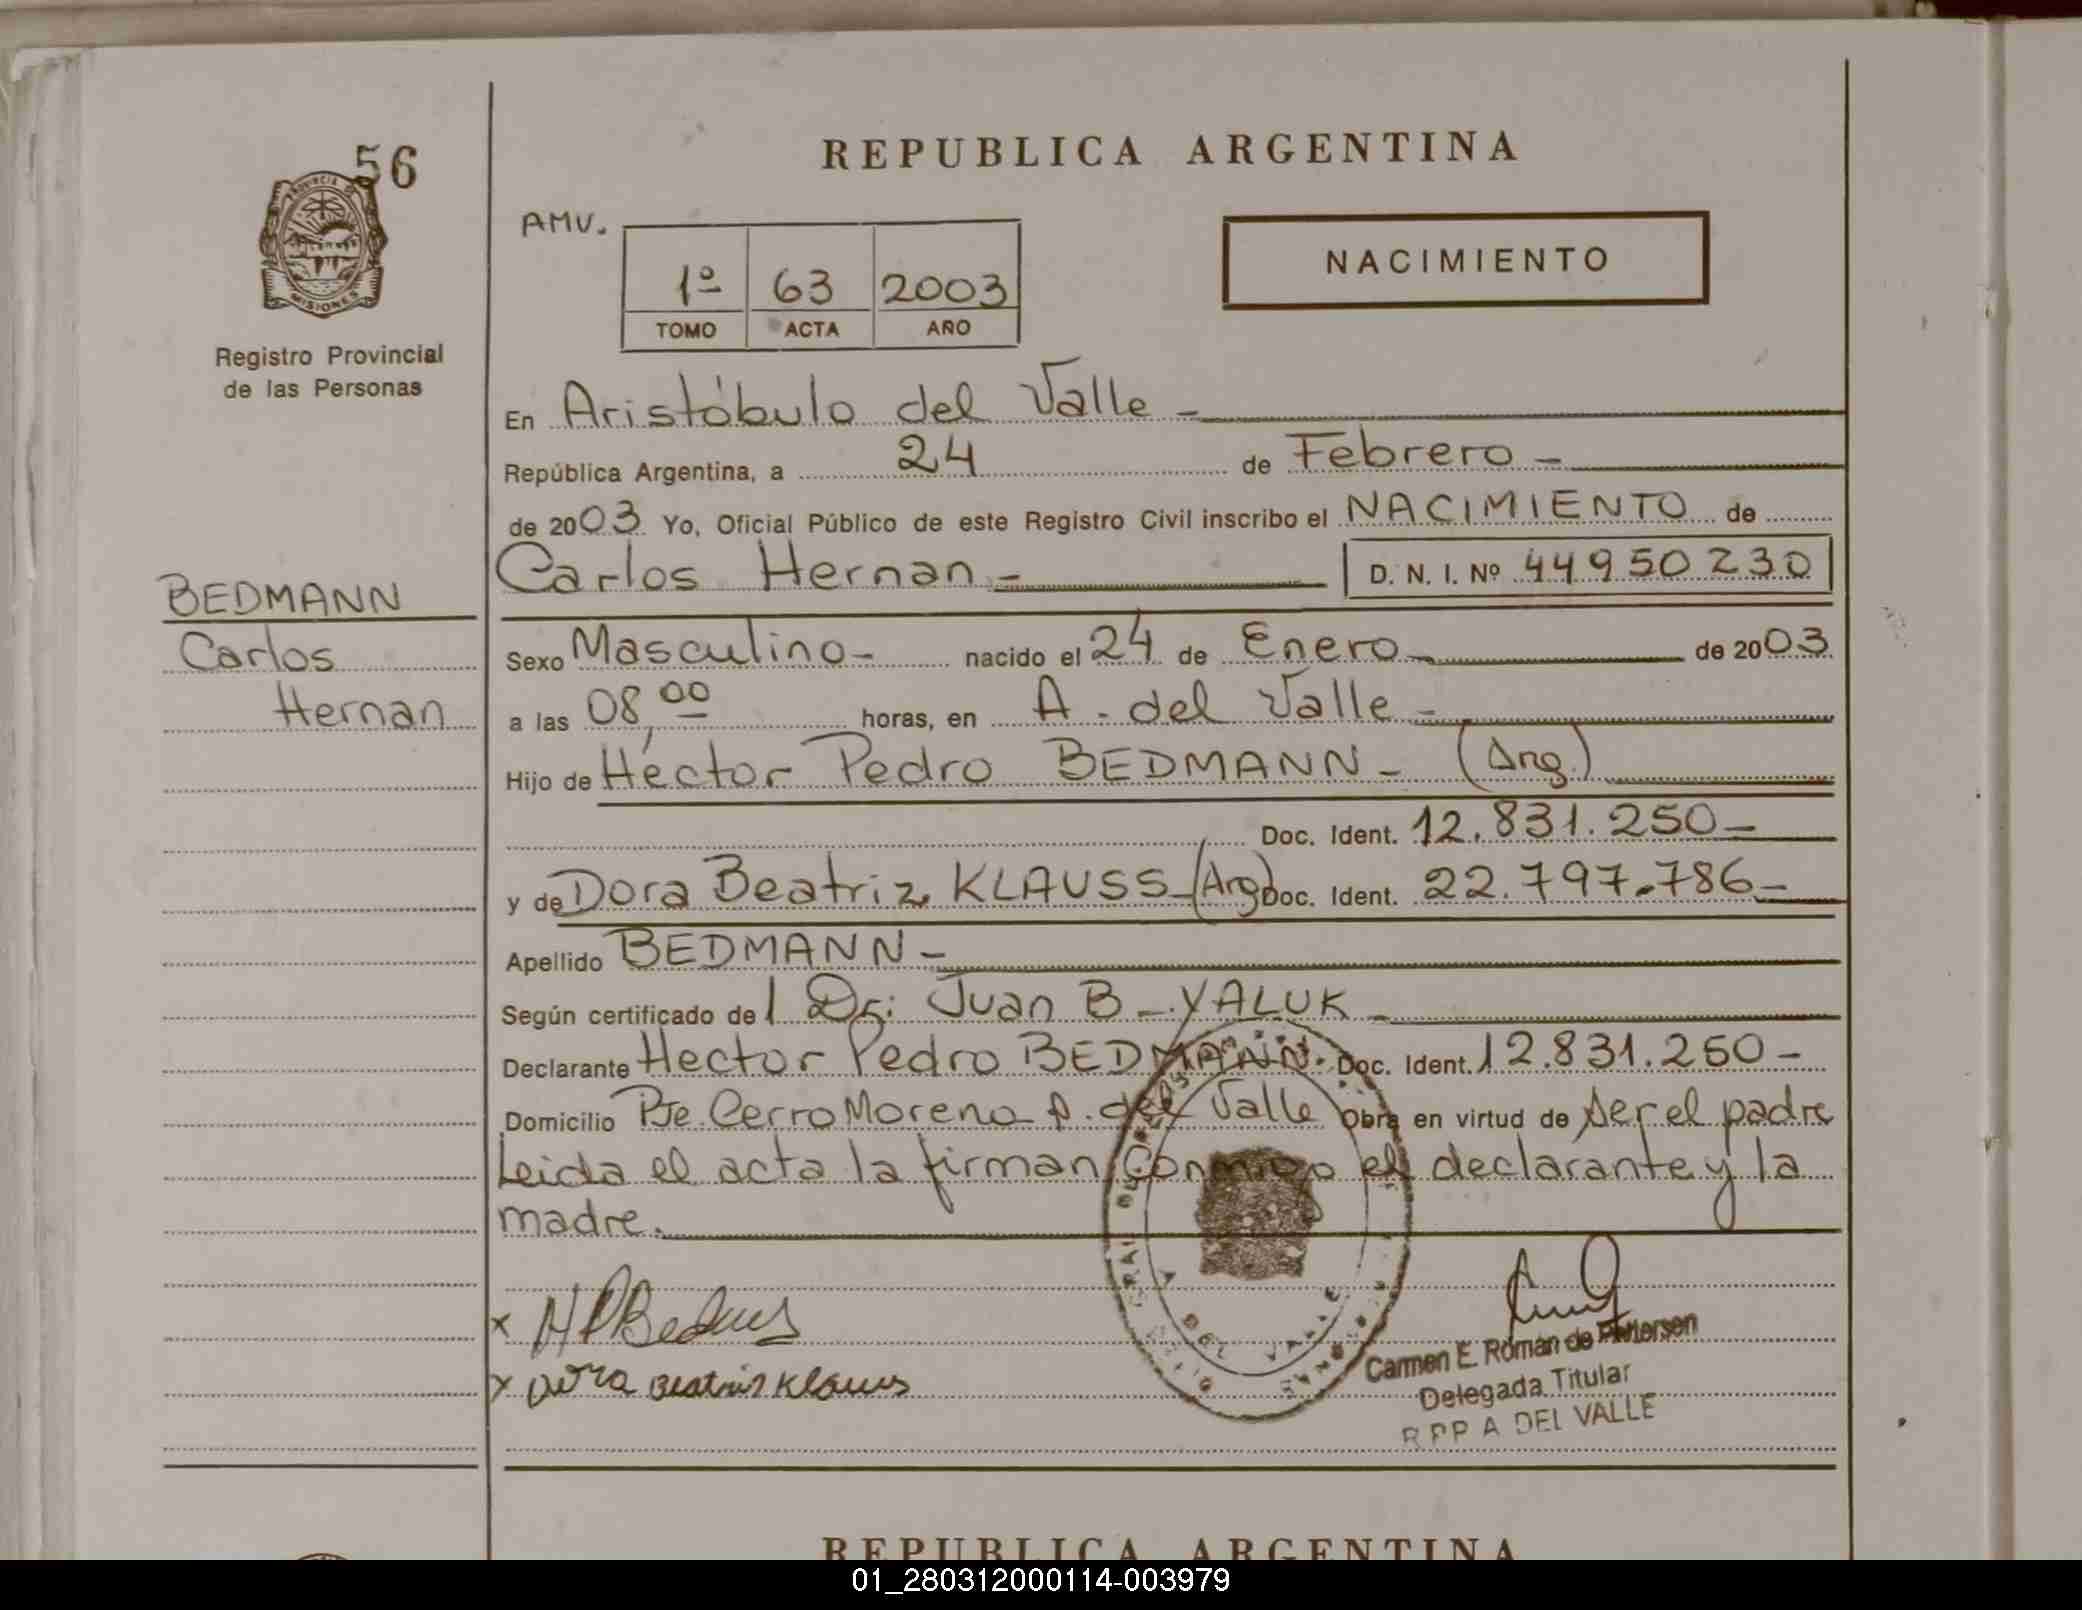 56
PROVINCIA DE
MISIONES
Registro Provincial
de las Personas
BEDMANN
Carlos
Hernan
REPUBLICA ARGENTINA
AMV.
1º 63 2003
TOMO ACTA AÑO
NACIMIENTO
En Aristóbulo del Valle -
República Argentina, a 24 de Febrero -
de 2003 Yo, Oficial Público de este Registro Civil inscribo el NACIMIENTO de
Carlos Hernan - D. N. I. Nº 44950230
Sexo Masculino- nacido el 24 de Enero- de 2003
a las 08,00 horas, en A. del Valle -
Hijo de Héctor Pedro BEDMANN - (Arg.)
Doc. Ident. 12.831.250-
y de Dora Beatriz KLAUSS-(Arg) Doc. Ident. 22.797.786-
Apellido BEDMANN -
Según certificado de l Dr: Juan B - YALUK -
Declarante Hector Pedro BEDMANN. Doc. Ident. 12.831.250-
Domicilio Pje. Cerro Moreno A. del Valle Obra en virtud de ser el padre
Leida el acta la firman conmigo el declarante y la
madre.
x HPBedmns
x Dora Beatris Klauss
DEL VALLE
Carmen E. Román de Pettersen
Delegada Titular
R P P A DEL VALLE
REPUBLICA ARGENTINA
01_280312000114-003979